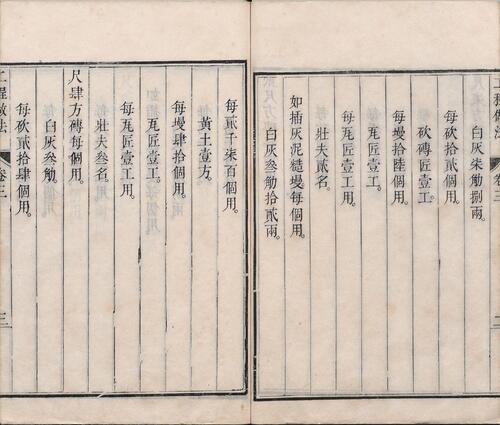 白灰柒觔捌兩。
每砍拾貳個用。
砍磚匠壹工。
每墁拾陸個用。
瓦匠壹工。
每瓦匠壹工用。
壯夫貳名。
如插灰泥糙墁每個用。
白灰叁觔拾貳兩。
每貳千柒百個用。
黄土壹方。
每墁肆拾個用。
瓦匠壹工。
每瓦匠壹工用。
壯夫叁名。
尺肆方磚每個用。
白灰叁觔。
每砍貳拾肆個用。
卷三
三